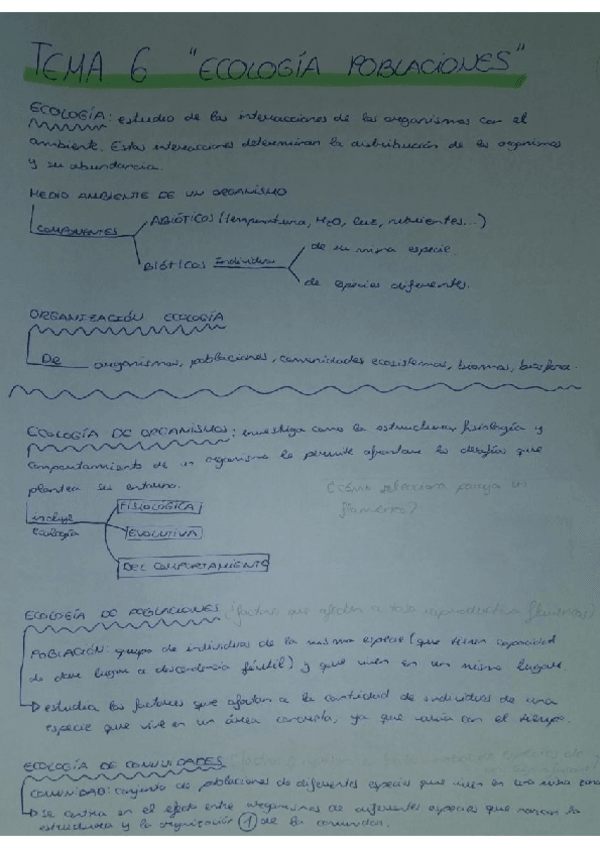 TEMA 6 "ECOLOGÍA POBLACIONES"
ECOLOGÍA: estudio de las interacciones de los organismos con el
ambiente. Estas interacciones determinan la distribución de los organismos
y su abundancia.
MEDIO AMBIENTE DE UN ORGANISMO
COMPONENTES
ABIÓTICOS (temperatura, H2O, luz, nutrientes...)
BIÓTICOS Individuos
de su misma especie.
de especies diferentes.
ORGANIZACIÓN ECOLOGÍA
De organismos, poblaciones, comunidades ecosistemas, biomas, biosfera.
ECOLOGÍA DE ORGANISMOS: investiga como la estructura, fisiología y
comportamiento de un organismo le permite afrontar los desafíos que
plantea su entorno.
¿Cómo selecciona pareja un
flamenco?
incluye
ecología
FISIOLÓGICA
EVOLUTIVA
DEL COMPORTAMIENTO
ECOLOGÍA DE POBLACIONES (factores que afectan a tasa reproductiva flamencos)
POBLACIÓN: grupo de individuos de la misma especie (que tienen capacidad
de dar lugar a descendencia fértil) y que viven en un mismo lugar.
estudia los factores que afectan a la cantidad de individuos de una
especie que vive en un área concreta, ya que varía con el tiempo.
ECOLOGÍA DE COMUNIDADES
COMUNIDAD: conjunto de poblaciones de diferentes especies que viven en una misma zona
se centra en el efecto entre organismos de diferentes especies que marcan la
estructura y la organización 1 de la comunidad.